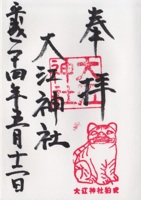 奉拝
大江神社
大江神社
平成二十四年五月十二日
大江神社狛虎